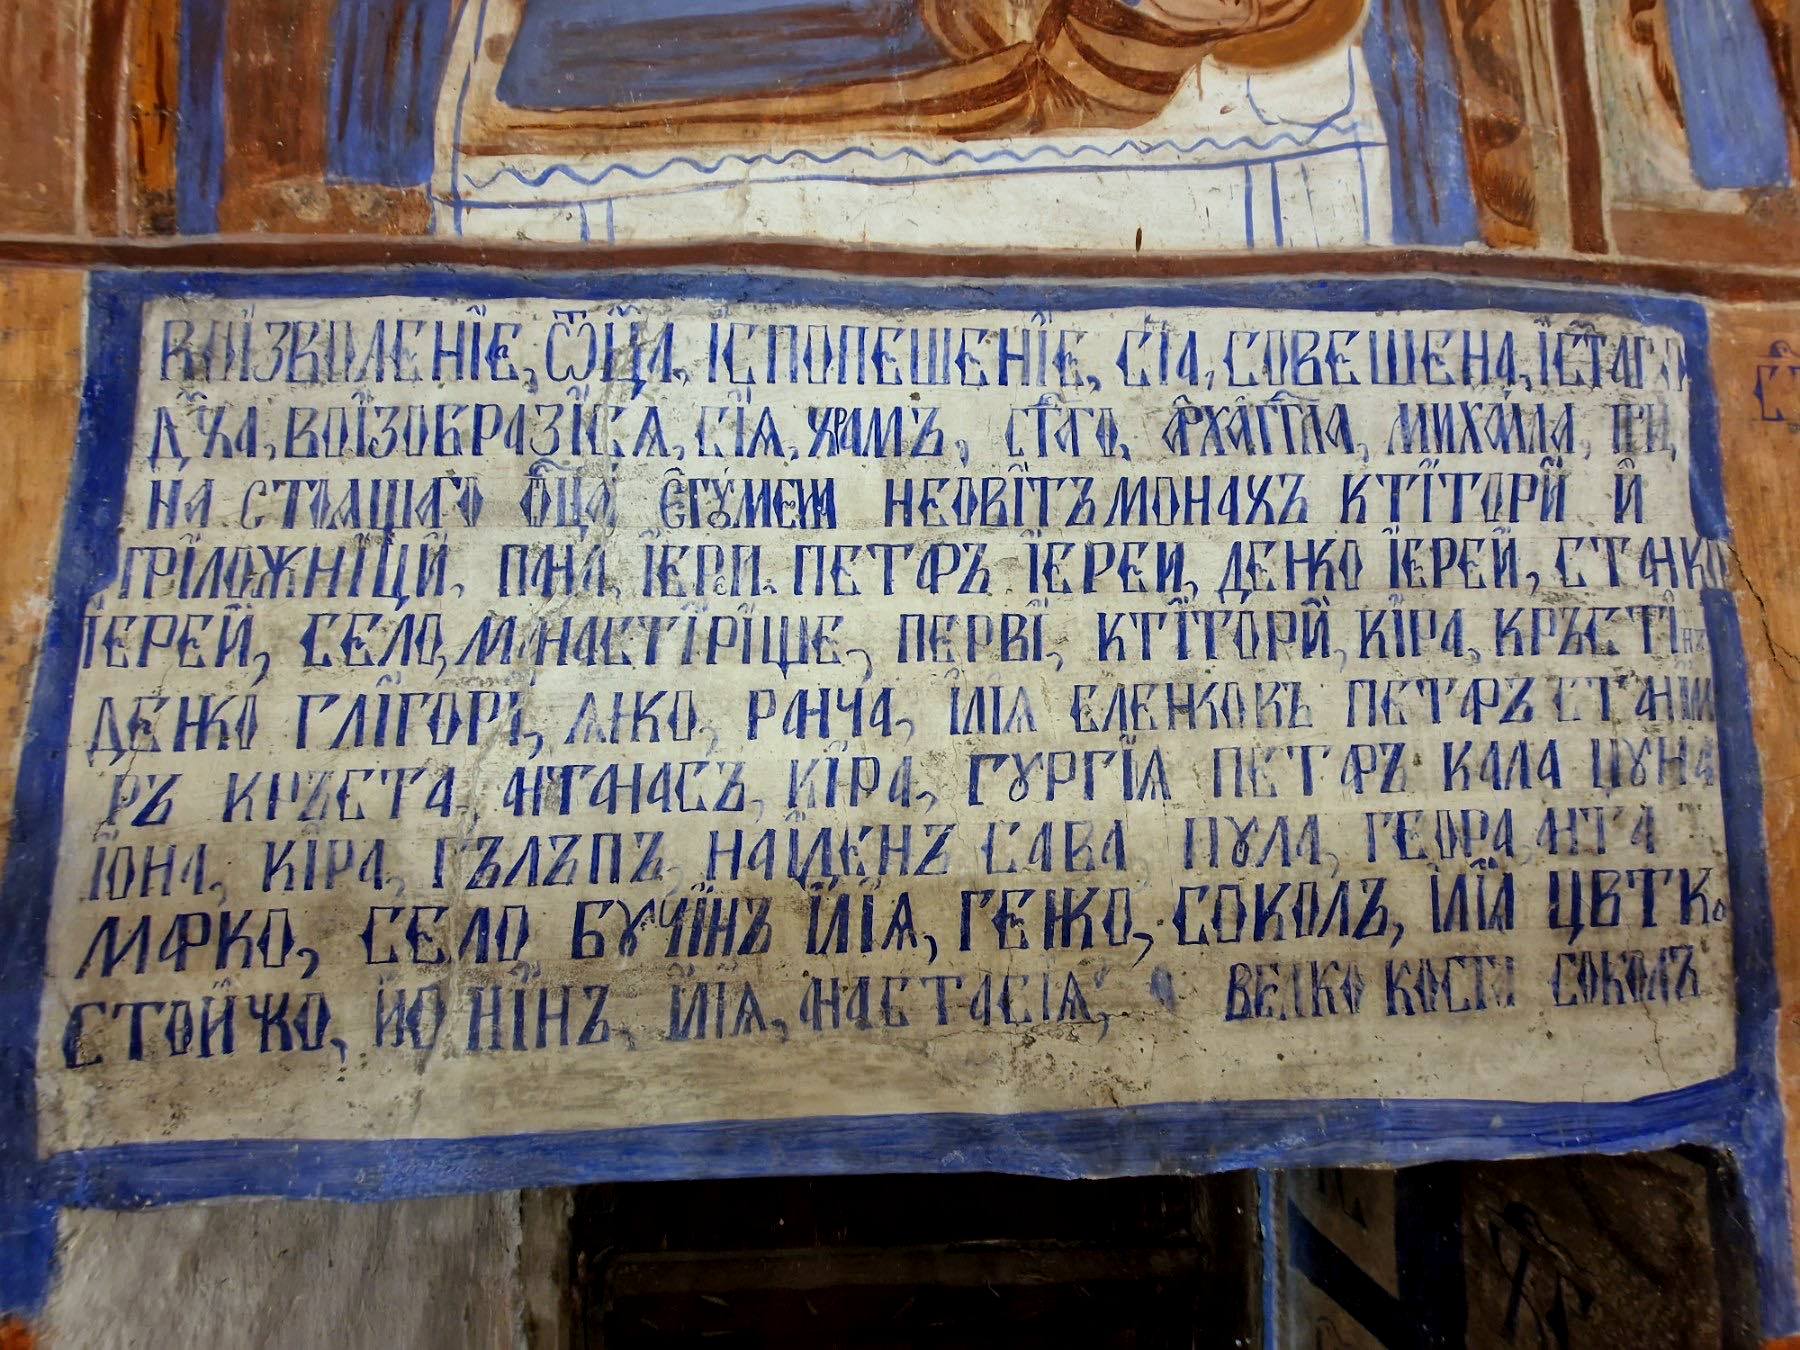 ВОІЗВОЛЕНЇЕ, Ѿ҆Ц҃А, ІСПОПЕШЕНЇЕ, СЇА, СОВЕШЕНА, ЇСТАГО
ДꙊХА, ВОЇЗОБРАЗЇСѦ, СЇѦ, ХРАМЪ, СТ҃АГО, АРХАГГ҃ЛА, МИХАИЛА, ПРИ,
НА СТОАЩАГО ѠЦА ЄГꙊМЕНА НЕОВЇТЪ МОНАХЪ КТЇТОРЙ Й
ПРЇЛОЖНЇЦЙ, ПАНА, ЇЕРИ ПЕТАРЪ ЇЕРЕИ, ДЕНКО ЇЕРЕЙ, СТАНКО
ЇЕРЕЙ, СЕЛО, МАНАСТЇРЇЩЕ, ПЕРВЇ, КТЇТОРЙ, КЇРА, КРЪСТІНЪ
ДЕНКО ГЛЇГОРІ, ѦНКО, РАНЧА, ЇЛІѦ ЕЛЕНКОКЪ ПЕТАРЪ СТАНЇМ
РЪ КРЪСТА, АНТАНАСЪ, КЇРА, ГꙊРГЇѦ ПЕТАРЪ КАЛА ЦꙊНА
ЇОНА, КЇРА, ГЪЛЪПЪ, НАЙДЕНЪ САВА, ПꙊЛА, ГЕОРА, АНТА
МАРКО, СЕЛО БꙊЧЇНЪ ЇЛЇѦ, ГЕНКО, СОКОЛЪ, ЇЛЇѦ ЦВТКО
СТОЙЧКО, ЙОНЇНЪ, ЇЛЇѦ, АНАСТАСІѦ, ВЕЛКО КОСТА СОКОЛЪ